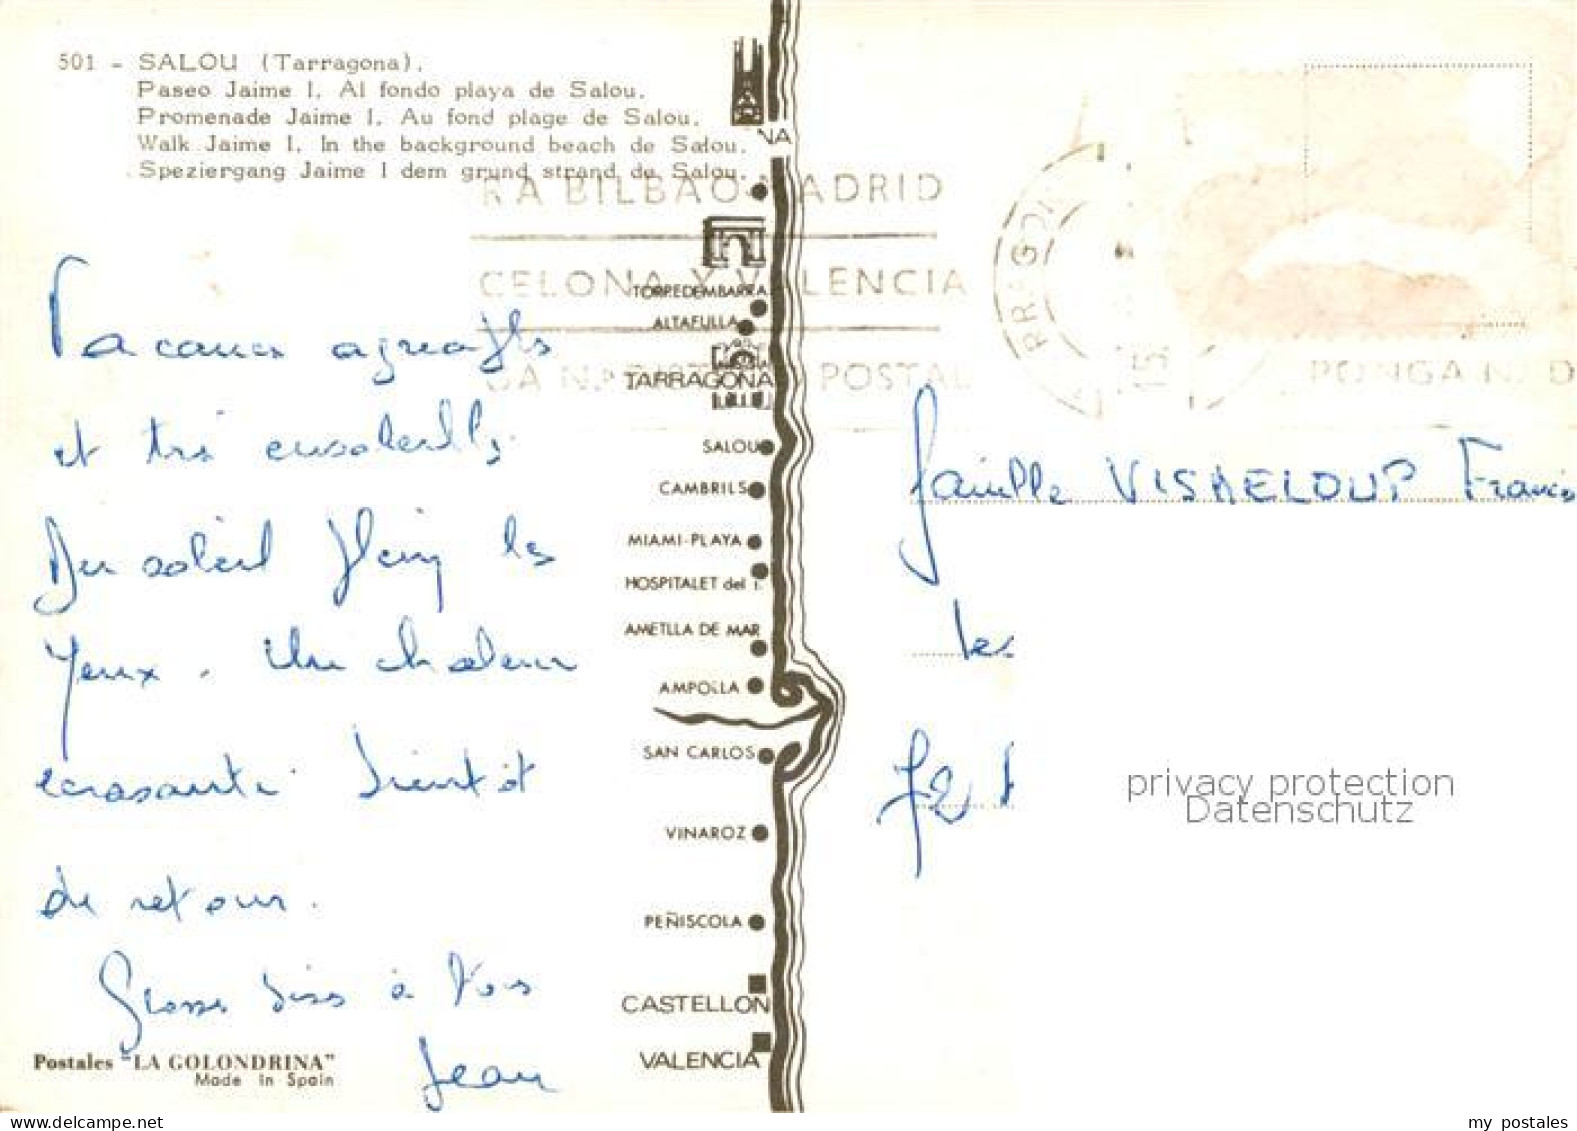 501 - SALOU (Tarragona).
Paseo Jaime I. Al fondo playa de Salou.
Promenade Jaime I. Au fond plage de Salou.
Walk Jaime I. In the background beach de Salou.
Speziergang Jaime I dem grund strand de Salou.
RA BILBAO MADRID
CELONA Y VALENCIA
POSTAL
PONGA N. D
NA
TORREDEMBARRA
ALTAFULLA
TARRAGONA
SALOU
CAMBRILS
MIAMI-PLAYA
HOSPITALET del I.
AMETLLA DE MAR
AMPOLLA
SAN CARLOS
VINAROZ
PEÑISCOLA
CASTELLON
VALENCIA
Vacances agréables
et très ensoleillés
Du soleil plein les
yeux. Une chaleur
écrasante. Bientôt
de retour.
Grosses bises à tous
Jean
Famille VISAELOUP Francis
les
72
privacy protection
Datenschutz
Postales "LA GOLONDRINA"
Made in Spain
www.delcampe.net
my postales